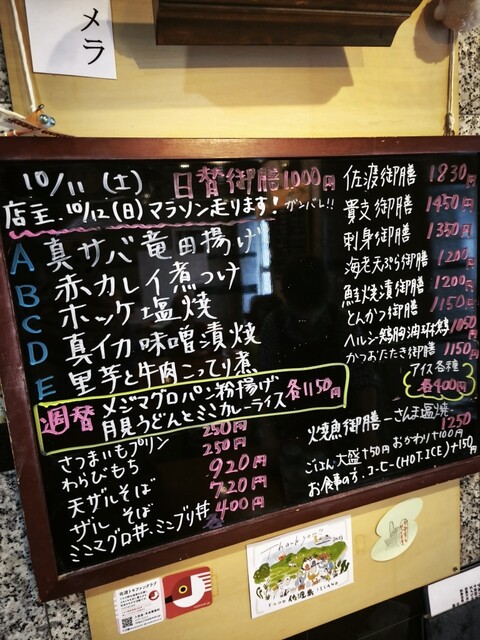 メラ
10/11 (土) 日替御膳 1000円
店主、10/12(日)マラソン走ります! ガンバレ!!
A 真サバ竜田揚げ
B 赤カレイ煮つけ
C ホッケ塩焼
D 真イカ味噌漬焼
E 里芋と牛肉こってり煮
週替 メジマグロパン粉揚げ
月見うどんとミニカレーライス 各1150円
さつまいもプリン 250円
わらびもち 250円
天ザルそば 920円
ザルそば 720円
ミニマグロ丼・ミニブリ丼 各400円
佐渡御膳 1830
貴文御膳 1450
刺身御膳 1350
海老天ぷら御膳 1200
鮭焼漬御膳 1200
とんかつ御膳 1150
ヘルシー鶏胸油琳鶏 1050
かつおたたき御膳 1150
アイス各種
各400円
焼魚御膳-さんま塩焼- 1250
ごはん大盛+50円 おかわり+100円
お食事の方、コーヒー(HOT.ICE)+150円
Thank you